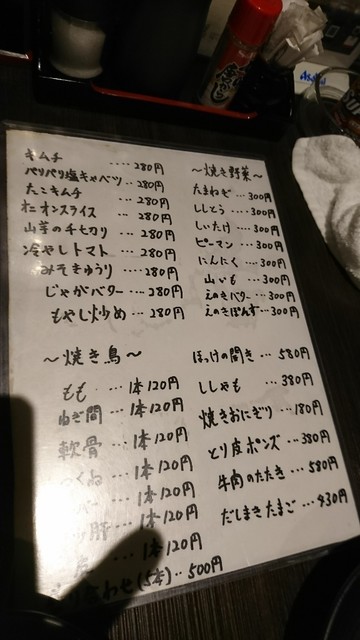 キムチ ････ 280円
パリパリ塩キャベツ ‥ 280円
たこキムチ ‥ 280円
オニオンスライス ･･･ 280円
山芋の千切り ･･･ 280円
冷やしトマト ･･･ 280円
みそきゅうり ････ 280円
じゃがバター ･･･ 280円
もやし炒め ･･･ 280円
〜焼き鳥〜
もも ･･･ 1本120円
ねぎ間 ･･･ 1本120円
軟骨 ･･･ 1本120円
つくね ･･･ 1本120円
バー ･･･ 1本120円
肝 ･･･ 1本120円
･･･ 1本120円
わせ(5本) ‥ 500円
〜焼き野菜〜
たまねぎ ･･･ 300円
ししとう ････ 300円
しいたけ ････ 300円
ピーマン ････ 300円
にんにく ････ 300円
山いも ････ 300円
えのきバター ･･･ 300円
えのきぽんず ･･･ 300円
ほっけの開き ･･･ 580円
ししゃも ･･･ 380円
焼きおにぎり ･･･ 180円
とり皮ポンズ ･･･ 380円
牛肉のたたき ･･･ 580円
だしまきたまご ･･･ 430円